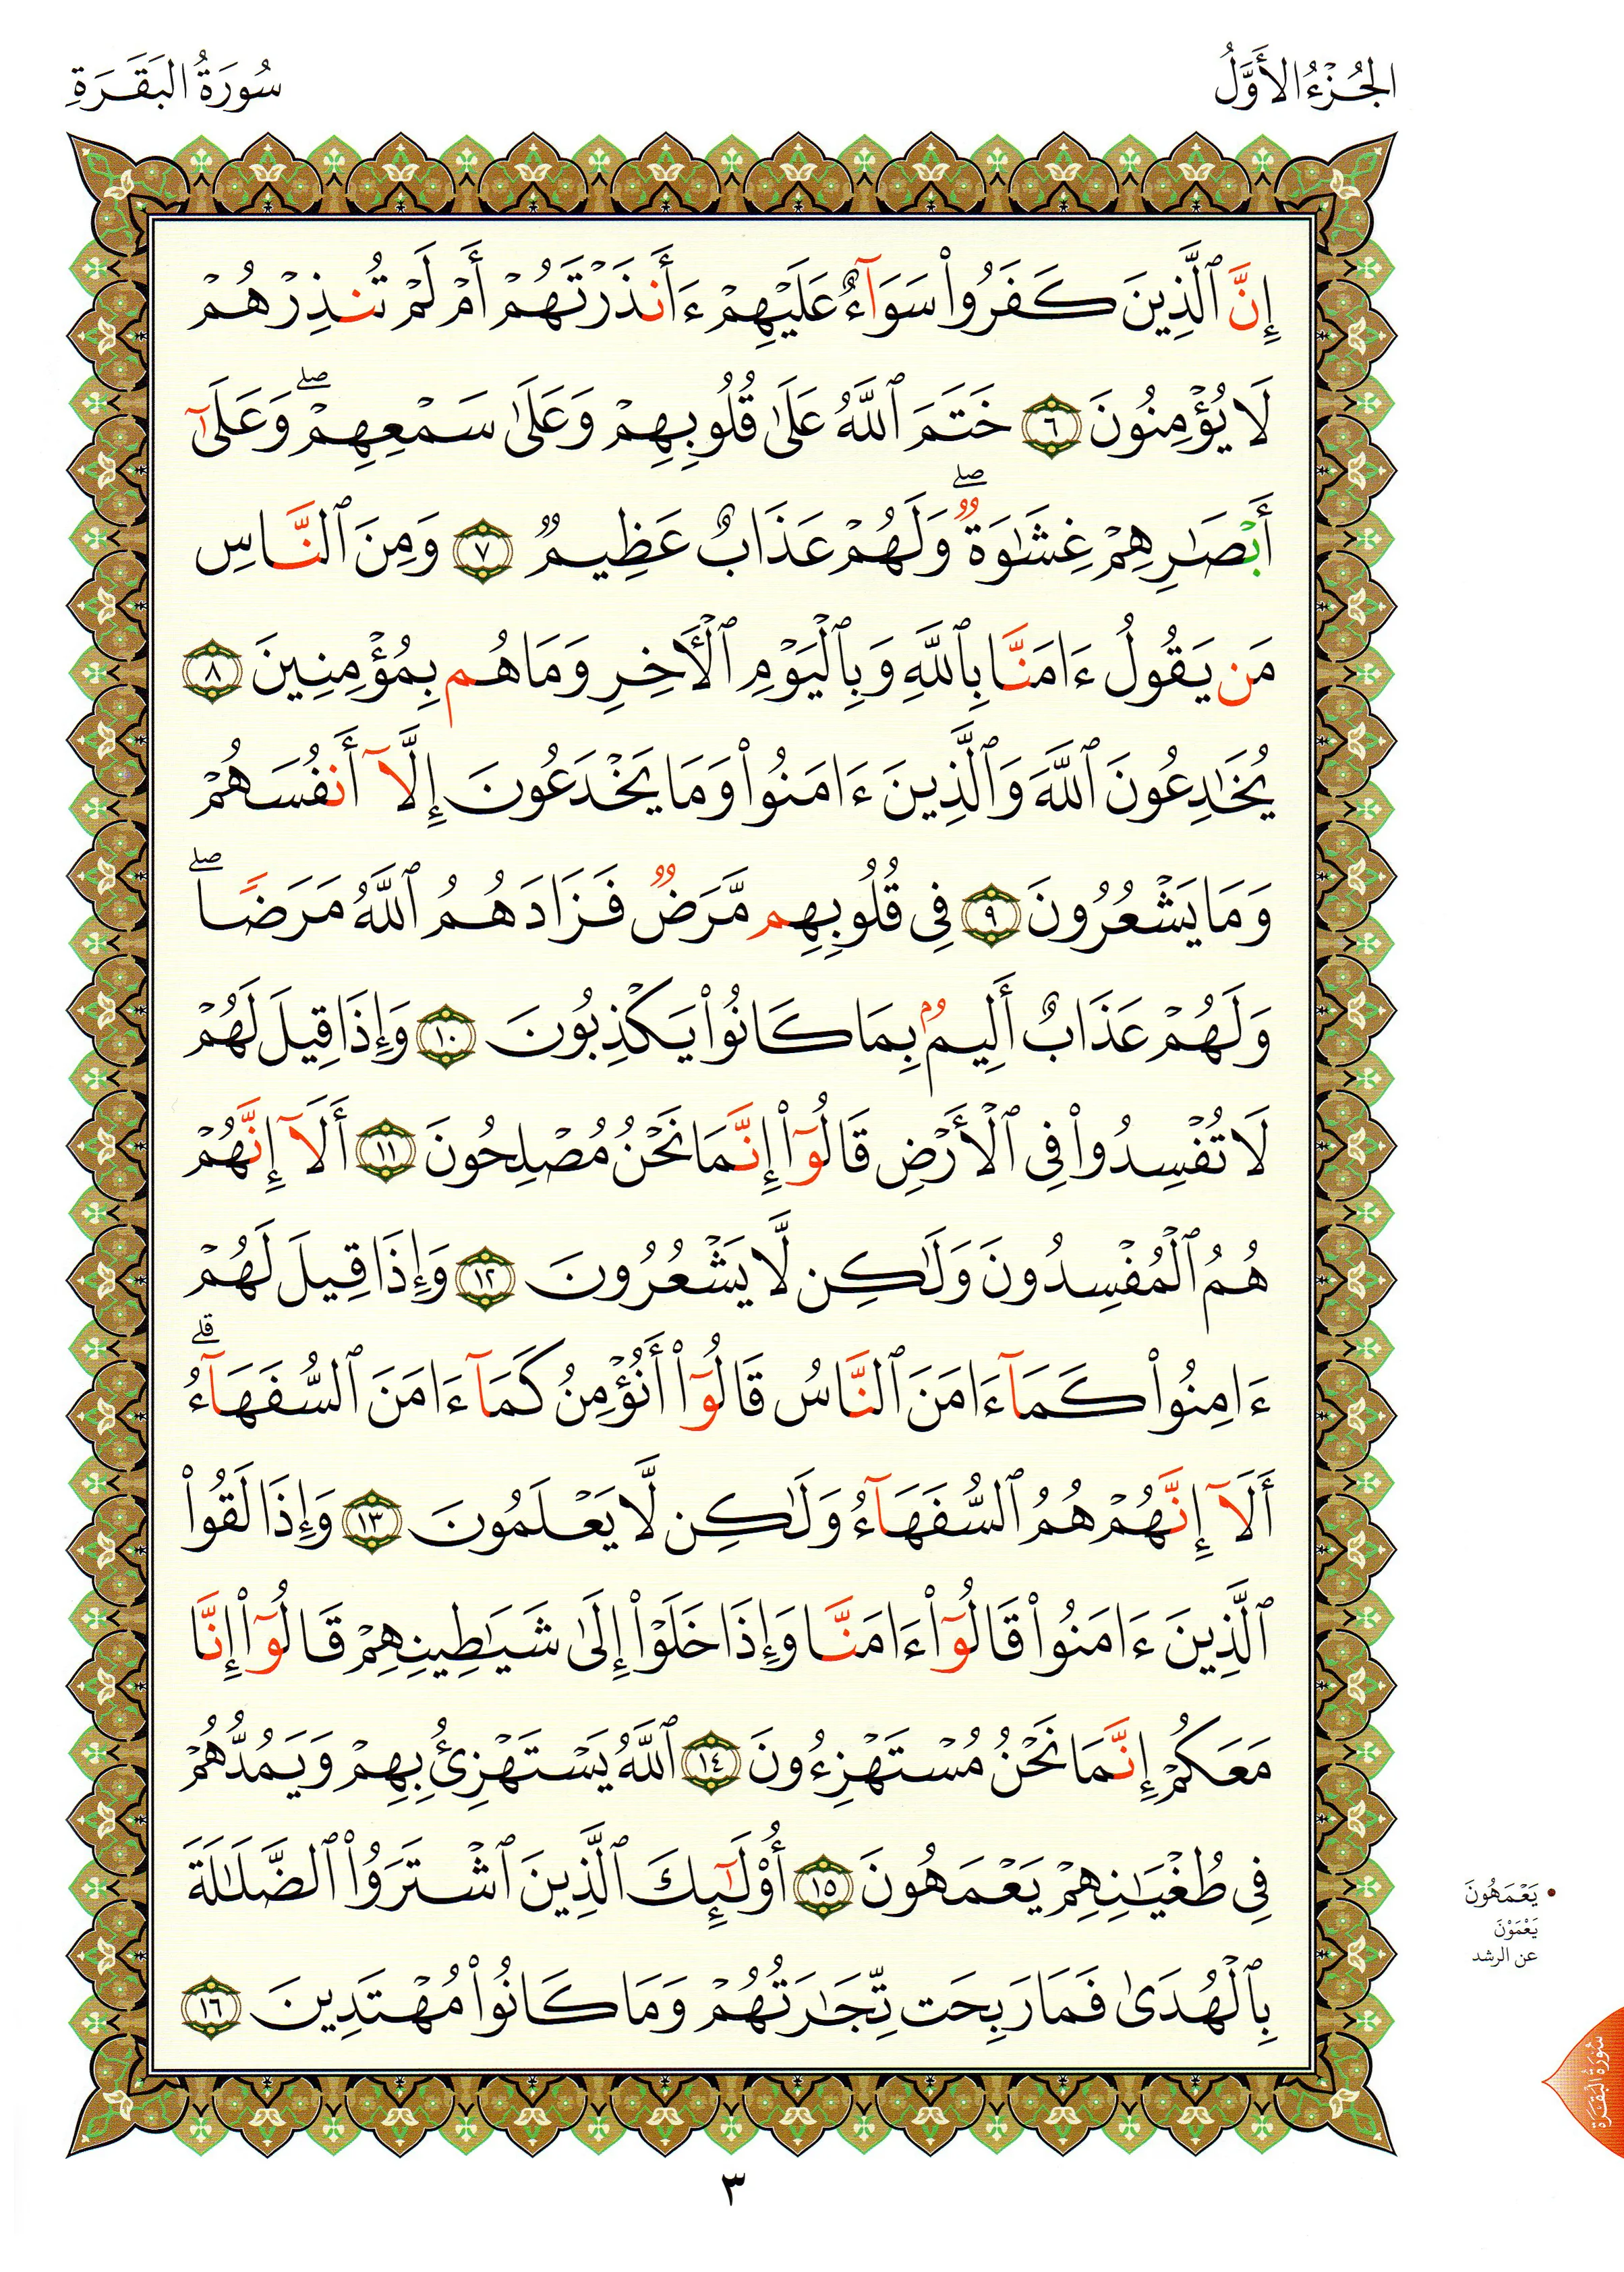 الجُزْءُ الأَوَّلُ
سُورَةُ البَقَرَةِ
إِنَّ ٱلَّذِينَ كَفَرُوا۟ سَوَآءٌ عَلَيْهِمْ ءَأَنذَرْتَهُمْ أَمْ لَمْ تُنذِرْهُمْ
لَا يُؤْمِنُونَ ٦ خَتَمَ ٱللَّهُ عَلَىٰ قُلُوبِهِمْ وَعَلَىٰ سَمْعِهِمْ ۖ وَعَلَىٰٓ
أَبْصَـٰرِهِمْ غِشَـٰوَةٌ ۖ وَلَهُمْ عَذَابٌ عَظِيمٌ ٧ وَمِنَ ٱلنَّاسِ
مَن يَقُولُ ءَامَنَّا بِٱللَّهِ وَبِٱلْيَوْمِ ٱلْأَخِرِ وَمَا هُم بِمُؤْمِنِينَ ٨
يُخَـٰدِعُونَ ٱللَّهَ وَٱلَّذِينَ ءَامَنُوا۟ وَمَا يَخْدَعُونَ إِلَّآ أَنفُسَهُمْ
وَمَا يَشْعُرُونَ ٩ فِى قُلُوبِهِم مَّرَضٌ فَزَادَهُمُ ٱللَّهُ مَرَضًا ۖ
وَلَهُمْ عَذَابٌ أَلِيمٌۢ بِمَا كَانُوا۟ يَكْذِبُونَ ١٠ وَإِذَا قِيلَ لَهُمْ
لَا تُفْسِدُوا۟ فِى ٱلْأَرْضِ قَالُوٓا۟ إِنَّمَا نَحْنُ مُصْلِحُونَ ١١ أَلَآ إِنَّهُمْ
هُمُ ٱلْمُفْسِدُونَ وَلَـٰكِن لَّا يَشْعُرُونَ ١٢ وَإِذَا قِيلَ لَهُمْ
ءَامِنُوا۟ كَمَآ ءَامَنَ ٱلنَّاسُ قَالُوٓا۟ أَنُؤْمِنُ كَمَآ ءَامَنَ ٱلسُّفَهَآءُ ۗ
أَلَآ إِنَّهُمْ هُمُ ٱلسُّفَهَآءُ وَلَـٰكِن لَّا يَعْلَمُونَ ١٣ وَإِذَا لَقُوا۟
ٱلَّذِينَ ءَامَنُوا۟ قَالُوٓا۟ ءَامَنَّا وَإِذَا خَلَوْا۟ إِلَىٰ شَيَـٰطِينِهِمْ قَالُوٓا۟ إِنَّا
مَعَكُمْ إِنَّمَا نَحْنُ مُسْتَهْزِءُونَ ١٤ ٱللَّهُ يَسْتَهْزِئُ بِهِمْ وَيَمُدُّهُمْ
فِى طُغْيَـٰنِهِمْ يَعْمَهُونَ ١٥ أُو۟لَـٰٓئِكَ ٱلَّذِينَ ٱشْتَرَوُا۟ ٱلضَّلَـٰلَةَ
بِٱلْهُدَىٰ فَمَا رَبِحَت تِّجَـٰرَتُهُمْ وَمَا كَانُوا۟ مُهْتَدِينَ ١٦
• يَعْمَهُونَ
يَعْمَوْنَ
عن الرشد
سُورَةُ البَقَرَةِ
٣